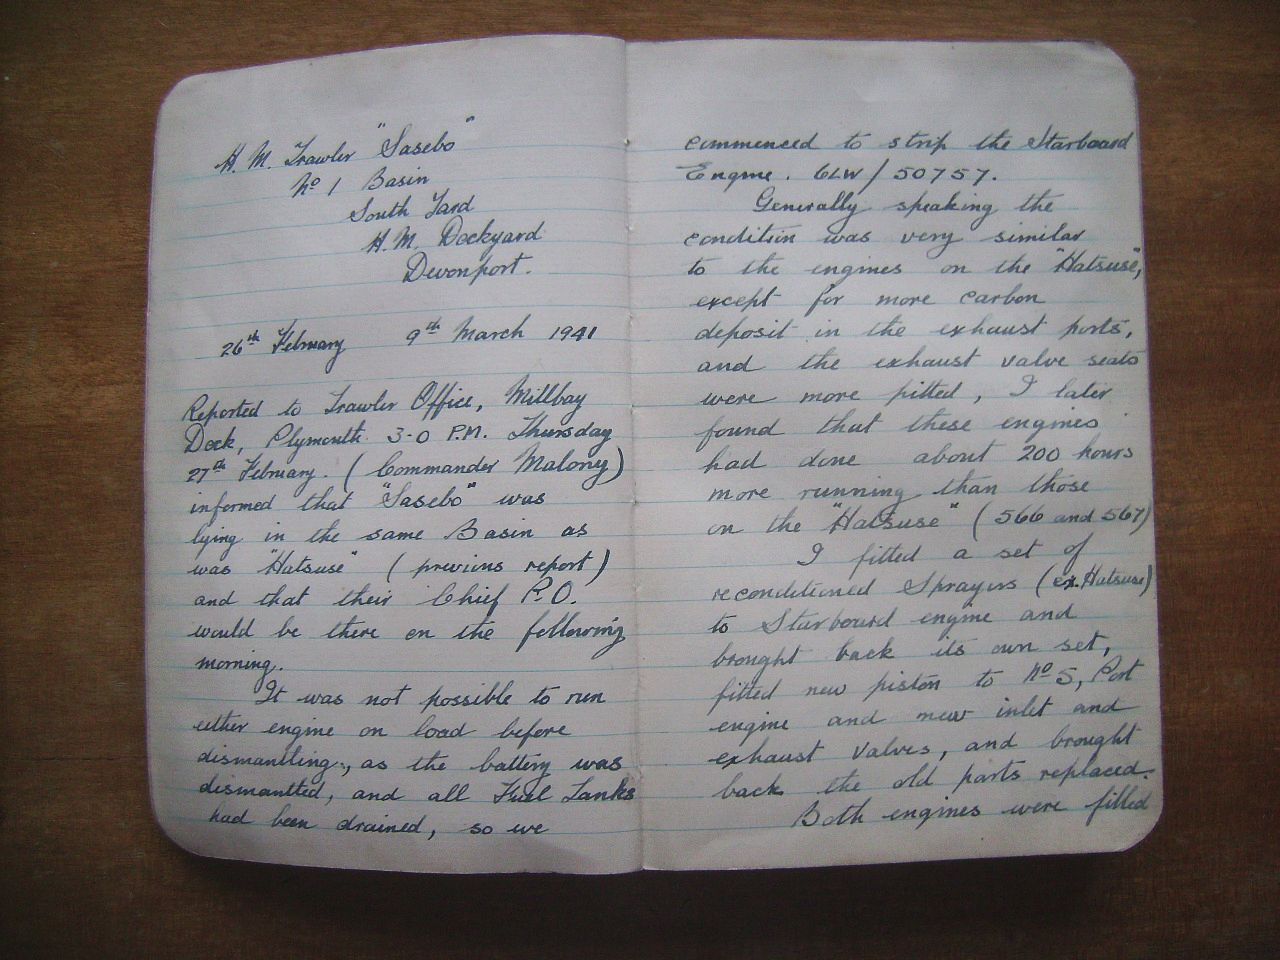 H. M. Trawler "Sasebo"
No 1 Basin
South Yard
H. M. Dockyard
Devonport.
26th February 9th March 1941
Reported to Trawler Office, Millbay
Dock, Plymouth 3-0 P.M. Thursday
27th February. (Commander Malony)
informed that "Sasebo" was
lying in the same Basin as
was "Hatsuse" (previous report)
and that their Chief P.O.
would be there on the following
morning.
It was not possible to run
either engine on load before
dismantling, as the battery was
dismantled, and all Fuel Tanks
had been drained, so we
commenced to strip the Starboard
Engine. 6LW/50757.
Generally speaking the
condition was very similar
to the engines on the "Hatsuse",
except for more carbon
deposit in the exhaust ports,
and the exhaust valve seats
were more pitted, I later
found that these engines
had done about 200 hours
more running than those
on the "Hatsuse" (566 and 567)
I fitted a set of
reconditioned Sprayers (ex. Hatsuse)
to Starboard engine and
brought back its own set,
fitted new piston to No 5, Port
engine and new inlet and
exhaust valves, and brought
back the old parts replaced.
Both engines were filled